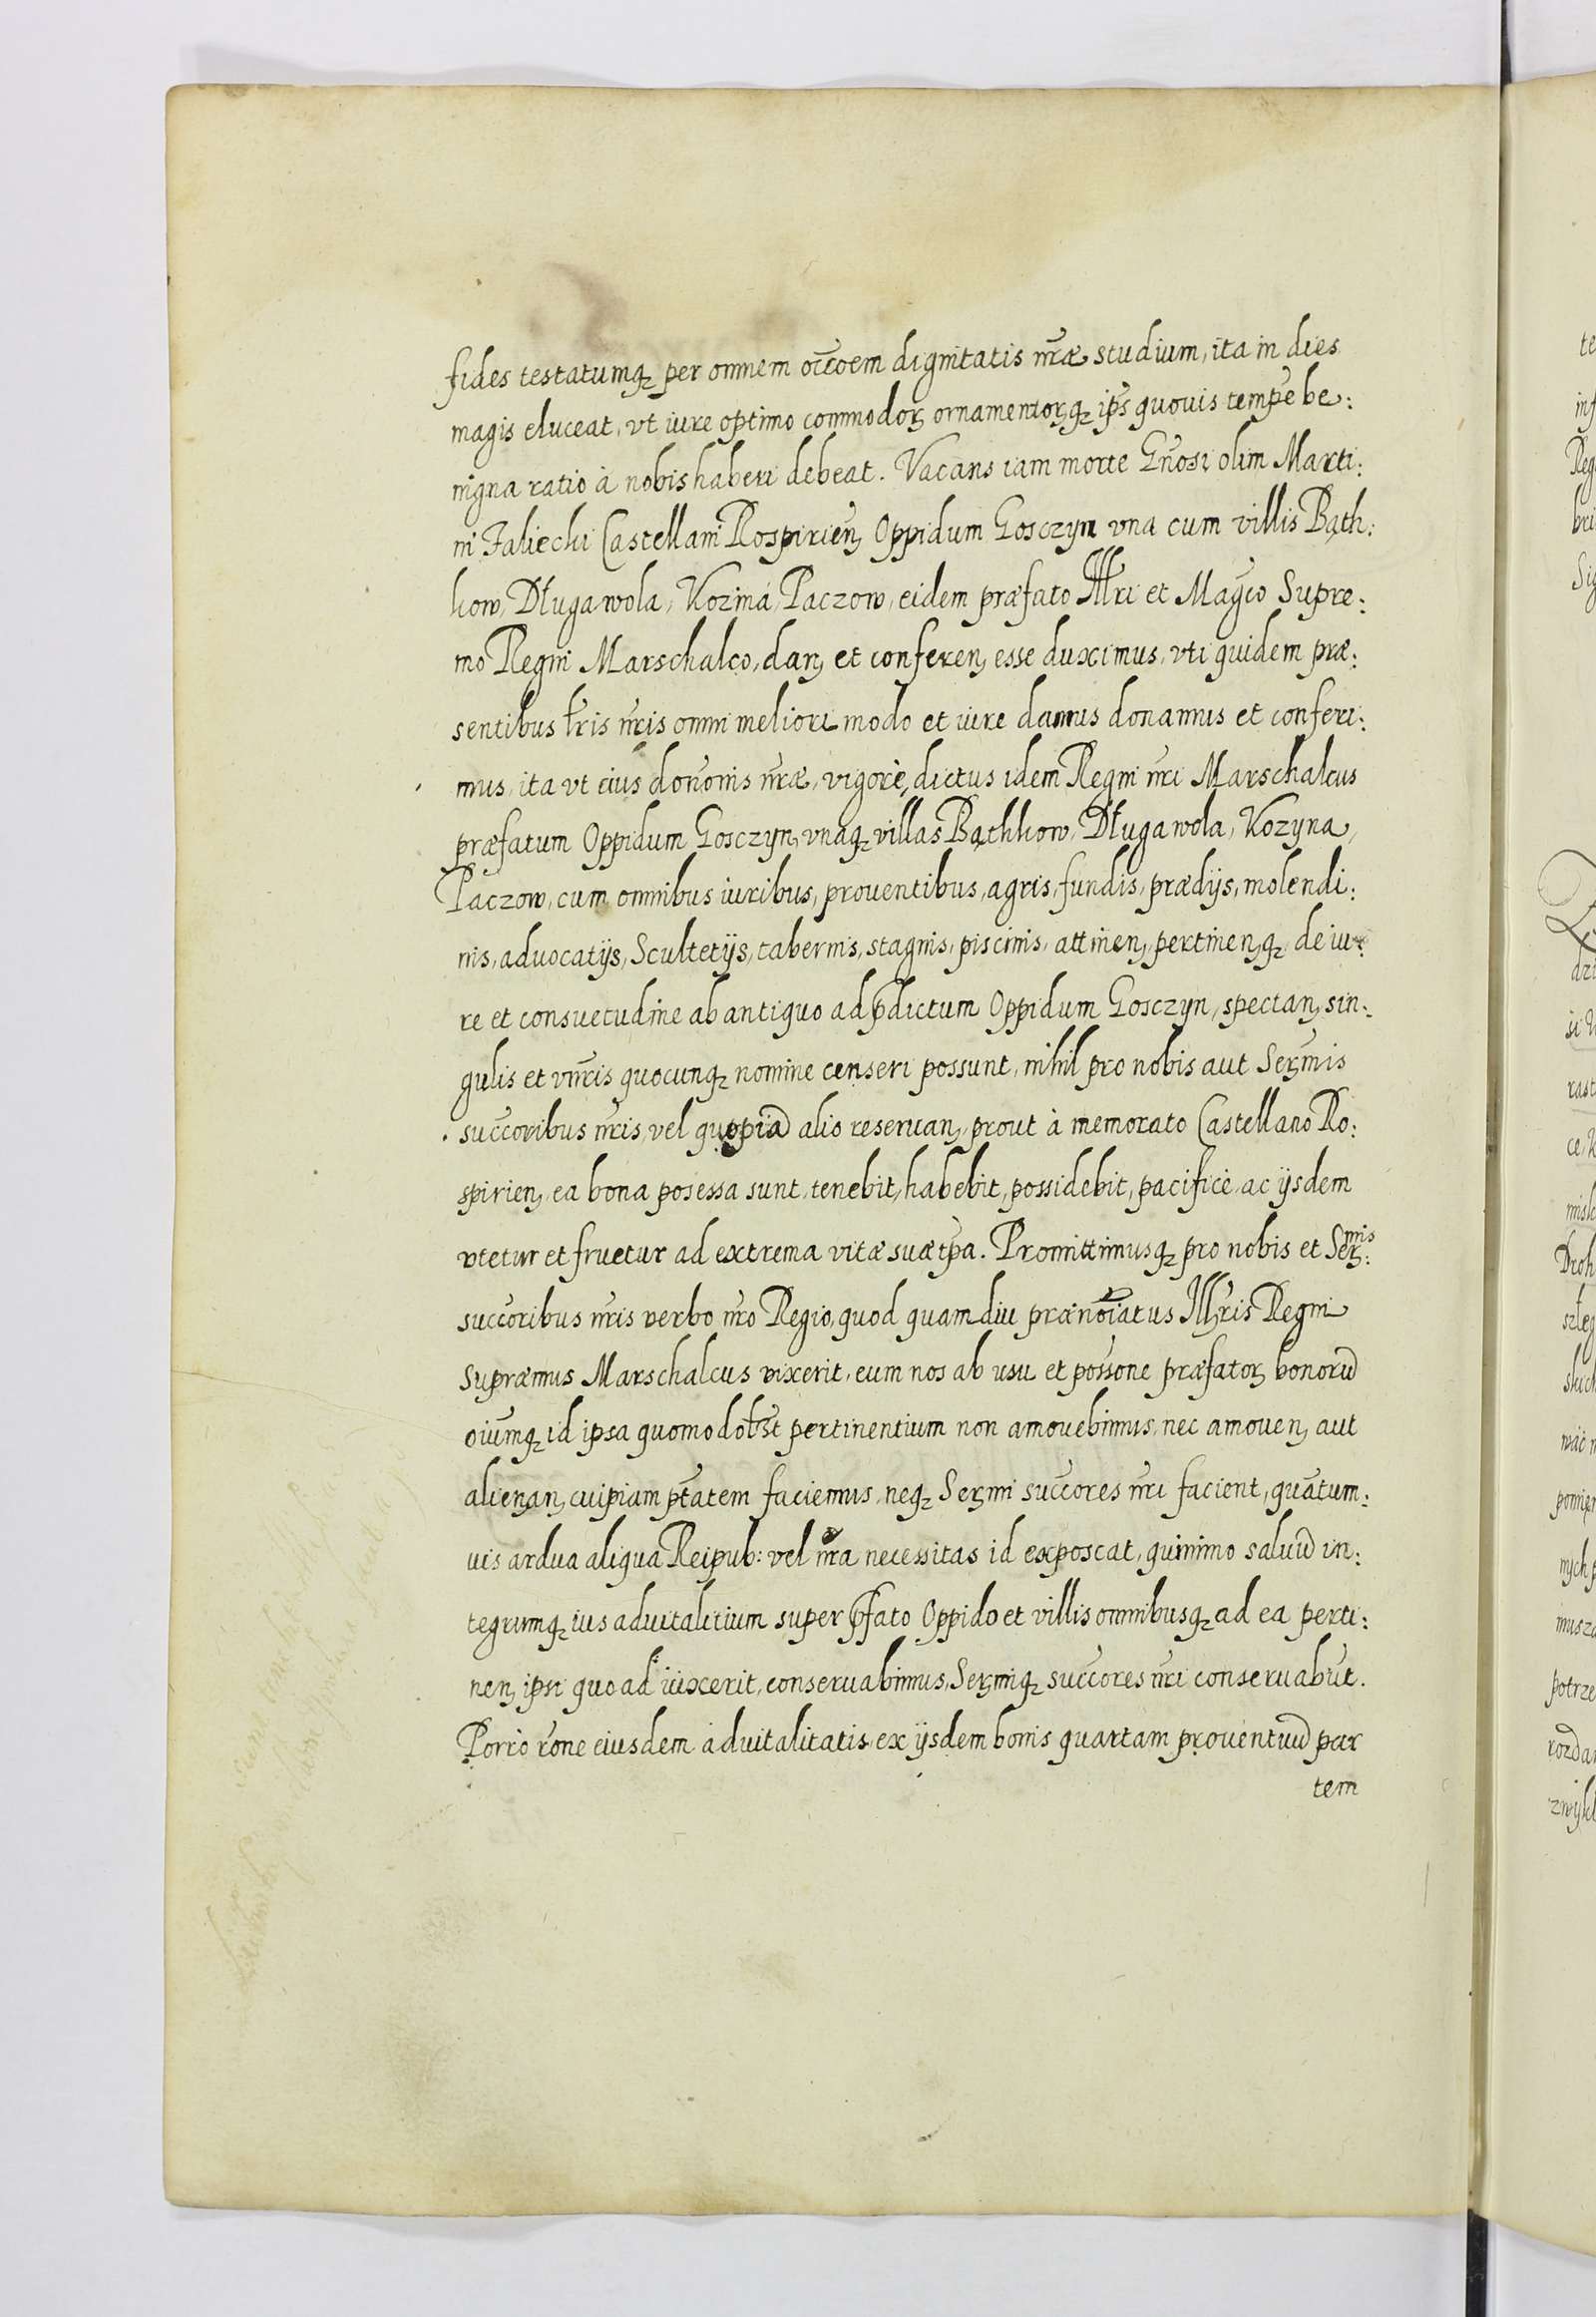 fides testatumqꝫ per omnem occ̃oem dignitatis nr̃æ studium, ita in dies
magis eluceat, vt iure optimo commodoꝝ ornamentoꝝqꝫ ip̃s quouis temp̃e be:
nigna ratio à nobis haberi debeat. Vacans iam morte Gñosi olim Marti:
ni Faliechi Castellani Rospirien̄, Oppidum Gosczyn vna cum villis Bąth:
kow, Długawola, Kozina, Paczow, eidem præfato Illri et Mag͠co Supre:
mo Regni Marschalco, dan, et conferen, esse duximus, vti quidem præ:
sentibus lr̃is nr̃is omni meliori modo et iure damus donamus et conferi:
mus, ita vt eius don̄onis nr̃æ, vigore, dictus idem Regni nr̃i Marschalcus
præfatum Oppidum Gosczyn, vnaqꝫ villas Bąthkow, Długawola, Kozyna,
Paczow, cum omnibus iuribus, prouentibus, agris, fundis, prædijs, molendi:
nis, aduocatijs, Scultetijs, tabernis, stagnis, piscinis, attinen, pertinen, qꝫ de iu:
re et consuetudine ab antiquo ad p̃dictum Oppidum Gosczyn, spectan, sin:
gulis et vnĩris quocunqꝫ nomine censeri possunt, nihil pro nobis aut Serꝫmis
succ̃oribus nr̃is, vel quopiā alio reseruan, prout à memorato Castellano Ro:
spirien, ea bona posessa sunt, tenebit, habebit, possidebit, pacifice, ac ijsdem
vtetur et fruetur ad extrema vitæ suæ tp̃a. Promittimusqꝫ pro nobis et Serꝫ:mis
succ̃oribus nr̃is verbo nr̃o Regio, quod quamdiu prænoĩatus Illr̃is Regni
Supræmus Marschalcus vixerit, eum nos ab usu et poss̃one præfatoꝝ bonorū
oĩumqꝫ id ipsa quomodolꝫt pertinentium non amouebimus, nec amouen, aut
alienan, cuipiam pt̃atem faciemus, neqꝫ Serꝫmi succ̃ores nr̃i facient, quātum:
uis ardua aliqua Reipub: vel nr̃a necessitas id exposcat, quinimo saluū in:
tegrumqꝫ ius aduitalitium super p̃fato Oppido et villis omnibusqꝫ ad ea perti:
nen, ipsi quo ad vixerit, conseruabimus, Serꝫmiqꝫ succ̃ores nr̃i conseruabūt.
Porro rõne eiusdem aduitalitatis ex ijsdem bonis quartam prouentuū par
tem